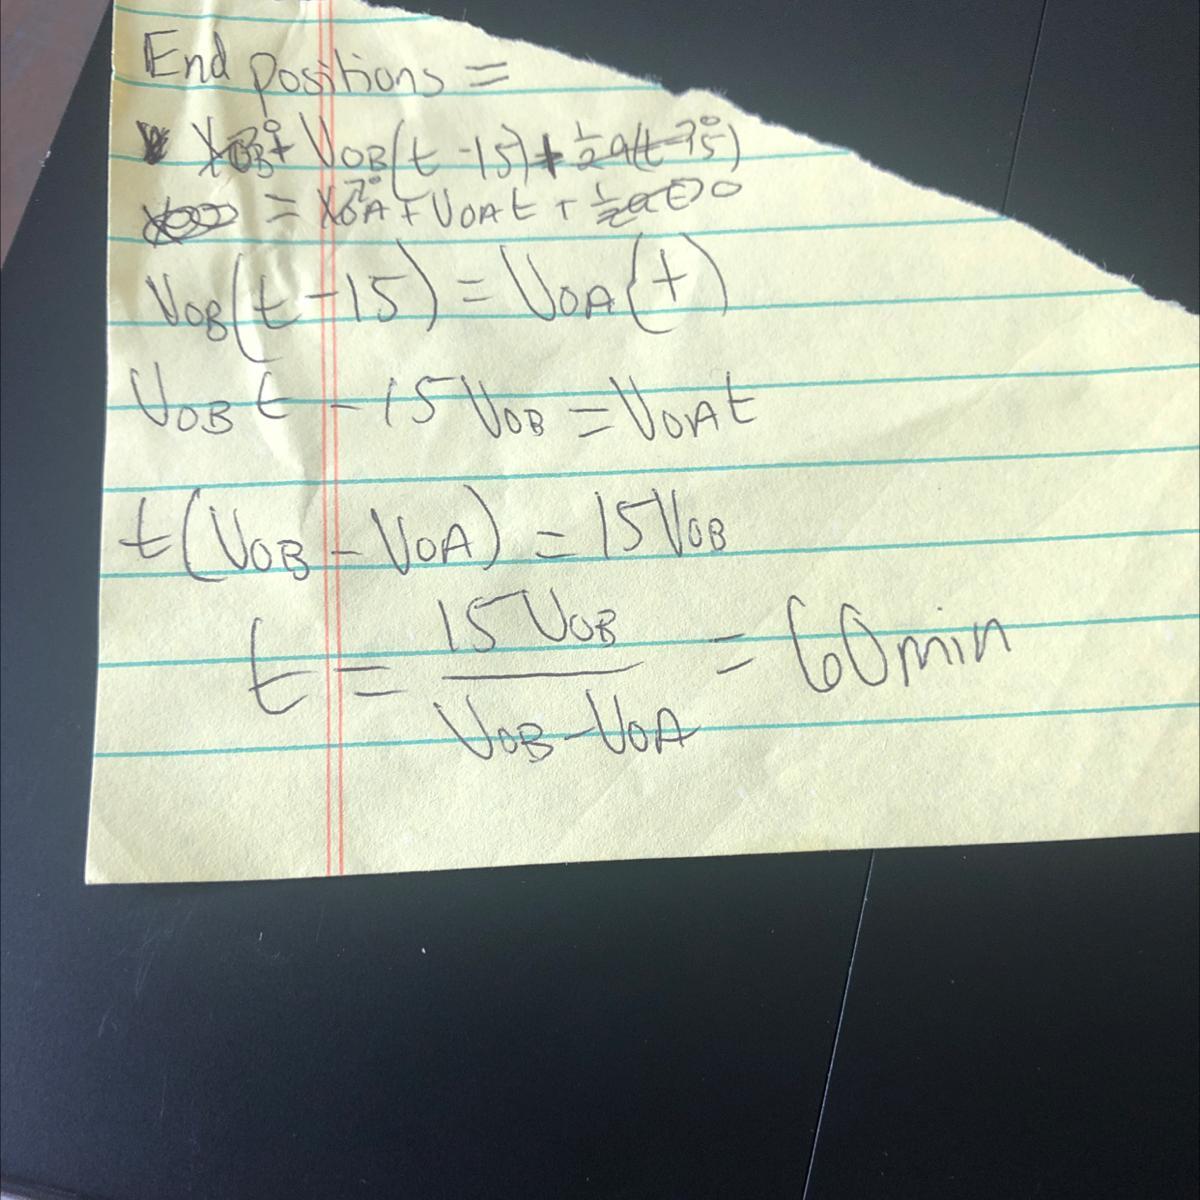 End positions =
X0B + V0B(t - 15) + 1/2 a(t - 15) 0
= X0A + V0A t + 1/2 a t 0
V0B(t - 15) = V0A(t)
V0B t - 15 V0B = V0A t
t(V0B - V0A) = 15 V0B
t = 15 V0B / (V0B - V0A) = 60 min